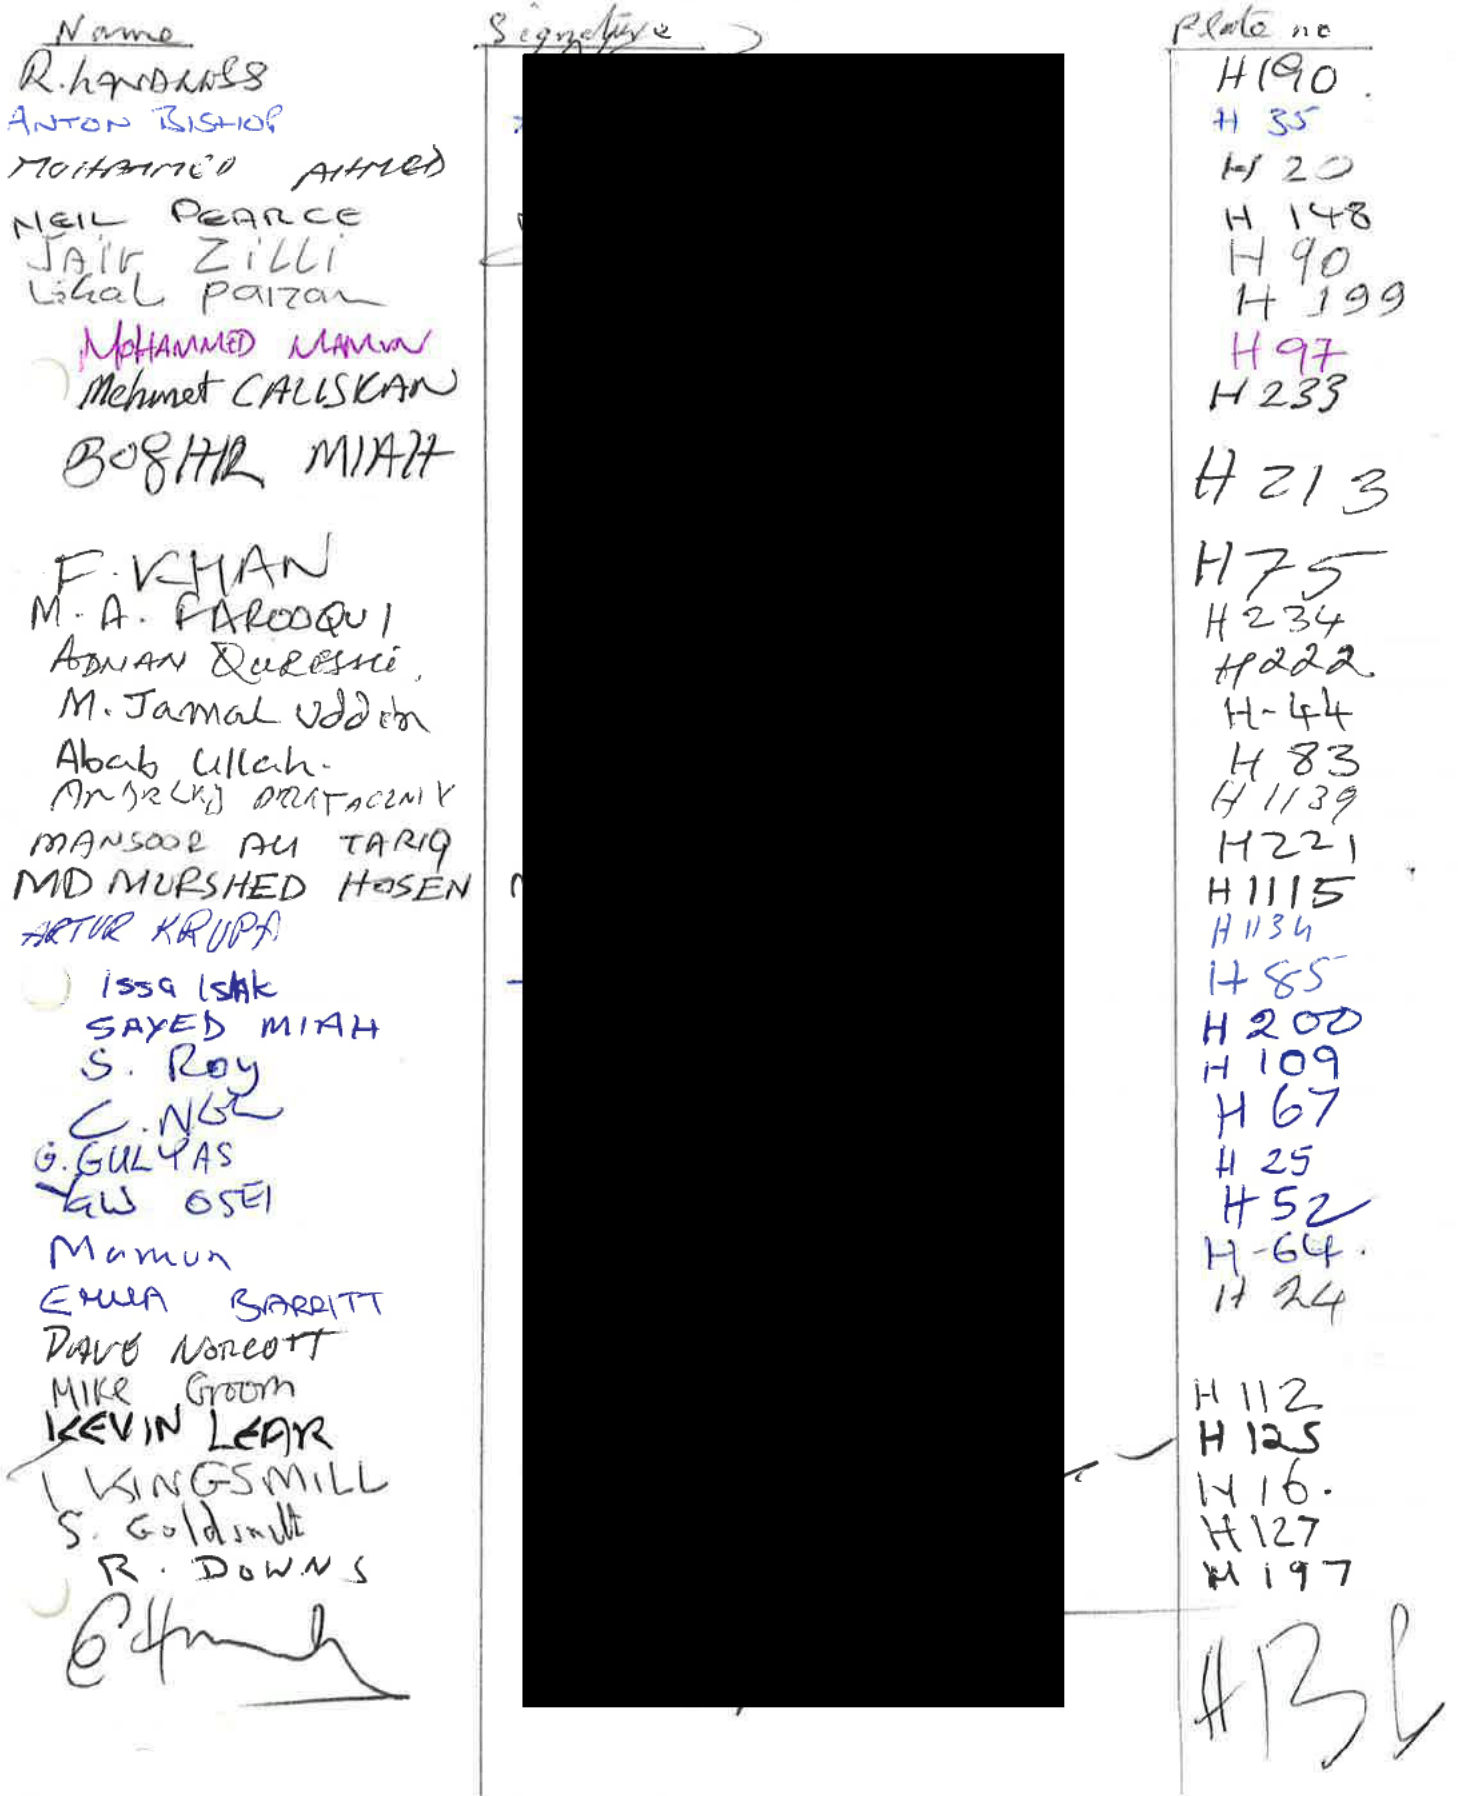 Name Signature Plate no
R. H190
ANTON BISHOP H 35
MOHAMMED AHMED H 20
NEIL PEARCE H 148
JAIR ZILLI H 90
H 199
MOHAMMED MAMUN H 97
Mehmet CALISKAN H 233
MIAH H 213
F. KHAN H 75
M. A. FAROOQUI H 234
ADNAN QURESHI. H 222
M. Jamal uddin H-44
Abab Ullah. H 83
H 1139
MANSOOR ALI TARIQ H 221
MD MURSHED HOSEN H 1115
ARTUR KRUPA H 1134
Issa Isak H 85
SAYED MIAH H 200
S. Roy H 109
C. H 67
G. GULYAS H 25
OSEI H 52
Mamun H-64.
EMMA BARRITT H 24
DAVE NORCOTT
MIKE Groom H 112
KEVIN LEAR H 125
I KINGSMILL H 16.
S. Goldsmith H 127
R. DOWNS H 197